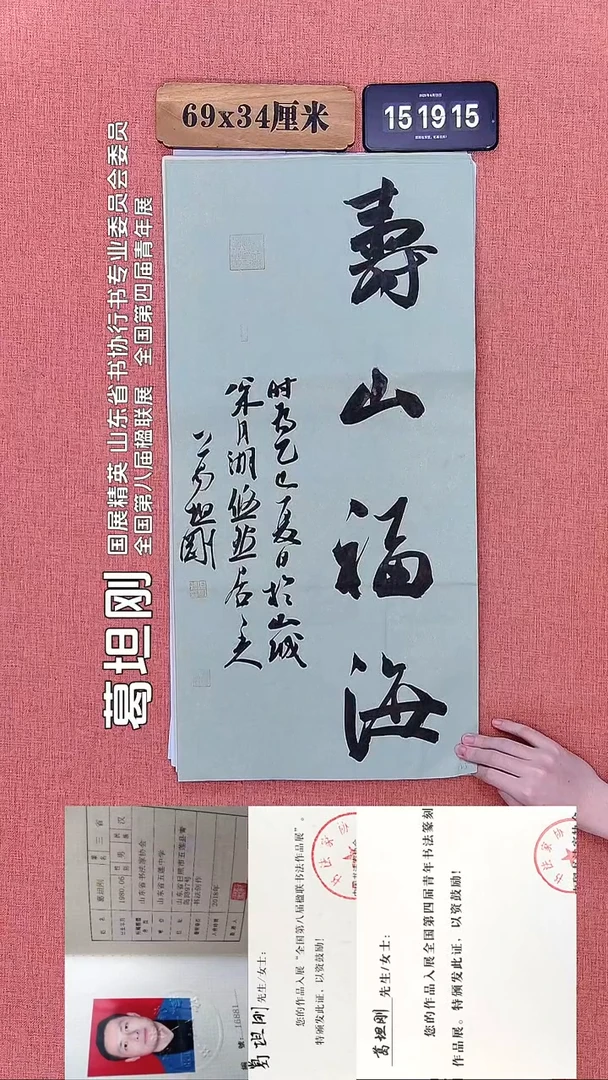 69x34厘米
15 19 15
寿山福海
时为乙巳夏日于山城
采月湖悠然居主
葛坦刚
葛坦刚
国展精英 山东省书协行书专业委员会委员
全国第八届楹联展 全国第四届青年展
葛坦刚 先生/女士:
您的作品入展“全国第八届楹联书法作品展”。
特颁发此证,以资鼓励!
葛坦刚 先生/女士:
您的作品入展全国第四届青年书法篆刻
作品展。特颁发此证,以资鼓励!
山东省书法家协会
山东省五莲中学
书法创作
16881